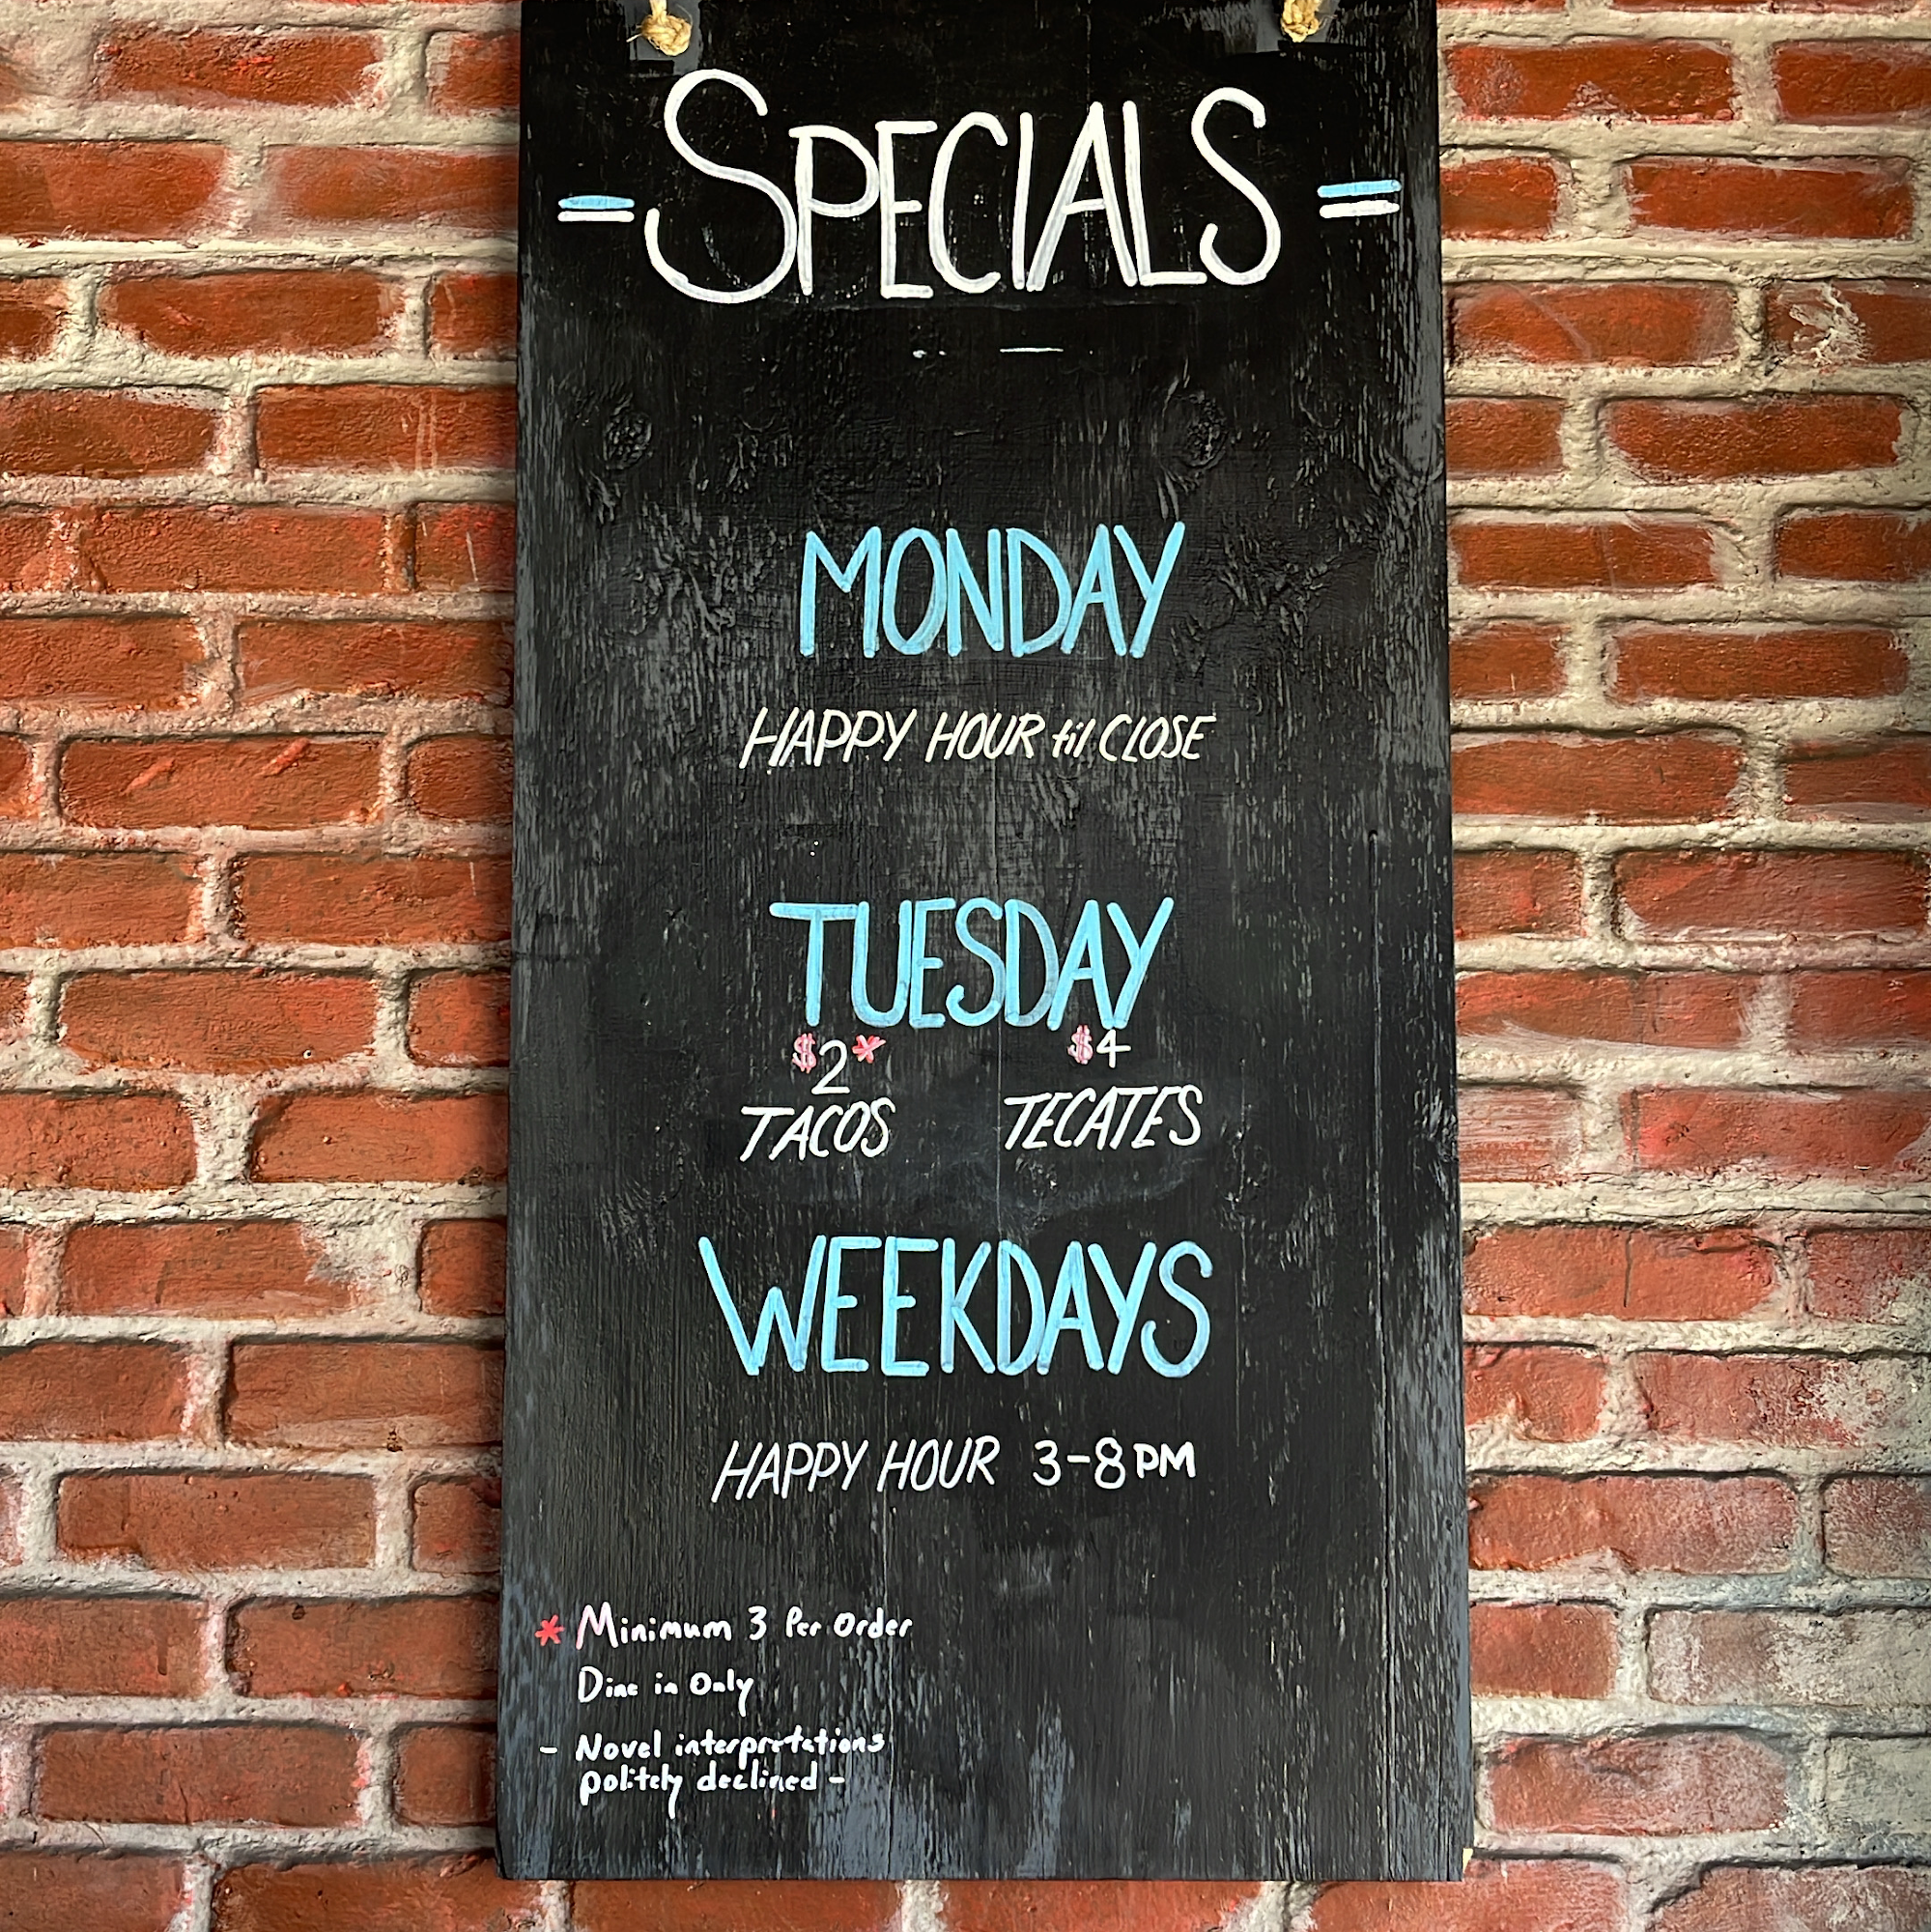 = SPECIALS =
MONDAY
HAPPY HOUR til CLOSE
TUESDAY
$2* $4
TACOS TECATES
WEEKDAYS
HAPPY HOUR 3-8PM
* Minimum 3 Per Order
Dine in Only
- Novel interpretations
politely declined -